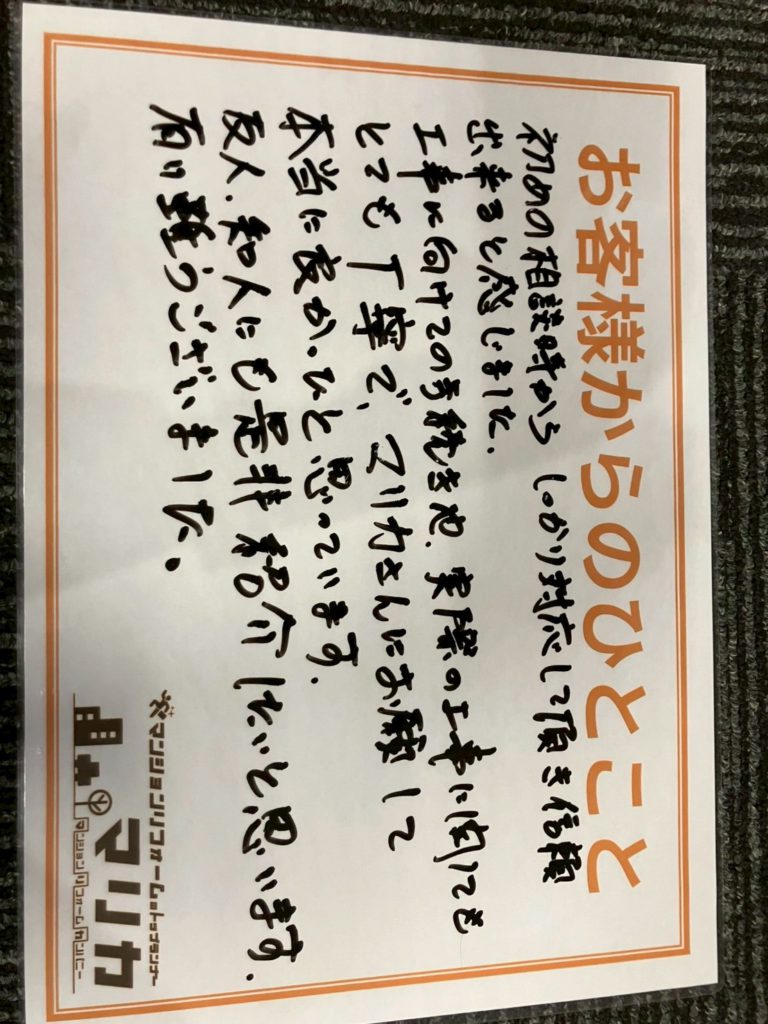 お客様からのひとこと
初めの相談時から しっかり対応して頂き信頼
出来ると感じました。
工事に向けての手続きや、実際の工事に関しても
とても丁寧で、マリカさんにお願して
本当に良かったと思っています。
友人、知人にも是非紹介したいと思います。
有り難うございました。
マンションリフォームのトップランナー
マリカ
マンションリフォームカンパニー